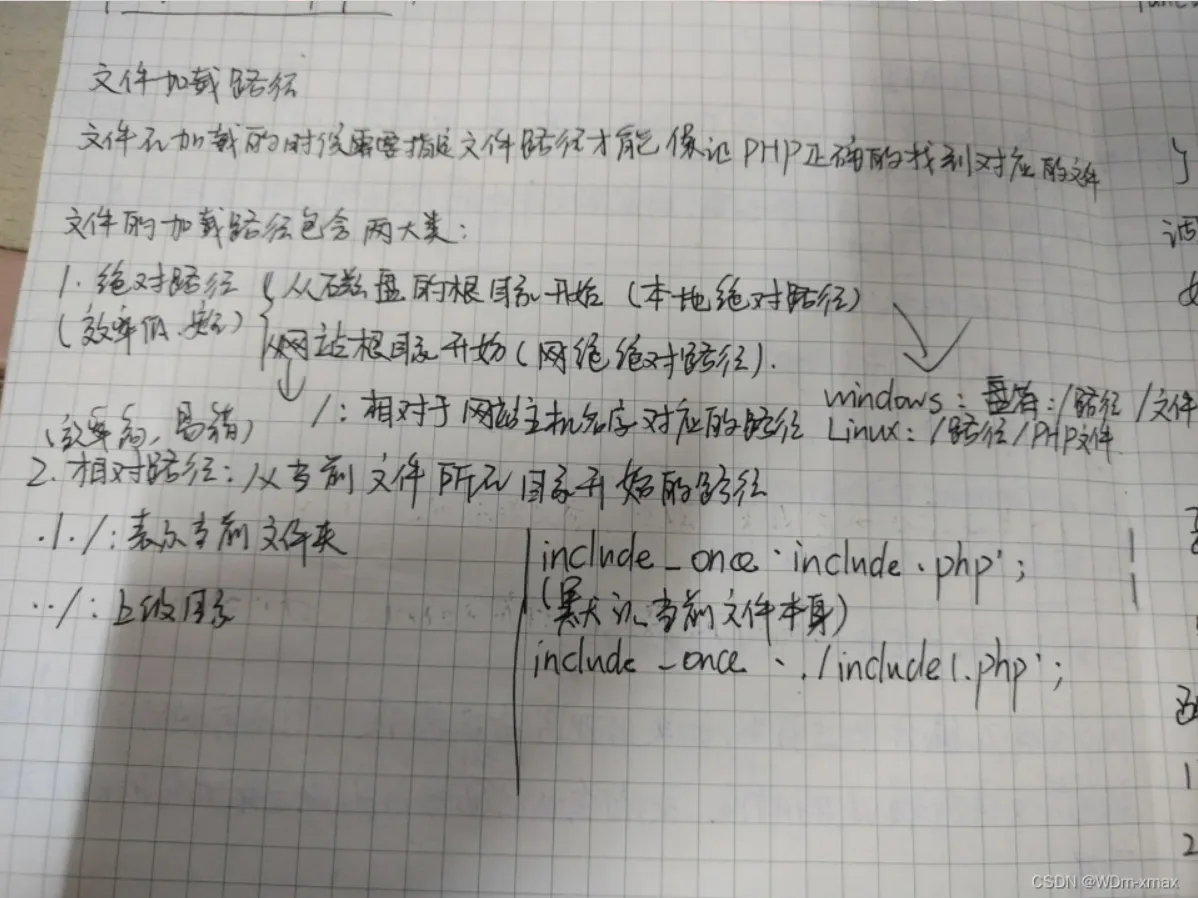 文件加载路径
文件在加载的时候需要指定文件路径才能保证PHP正确的找到对应的文件
文件的加载路径包含两大类：
1. 绝对路径 { 从磁盘的根目录开始（本地绝对路径）
（效率低、安全） 从网站根目录开始（网绝绝对路径）.
windows：盘符:/路径/文件
/：相对于网站主机名字对应的路径
Linux：/路径/PHP文件
（效率高，易错）
2. 相对路径：从当前文件所在目录开始的路径
.1./：表示当前文件夹
../：上级目录
include_once 'include.php';
（默认当前文件本身）
include_once './include1.php';
CSDN @WDm-xmax